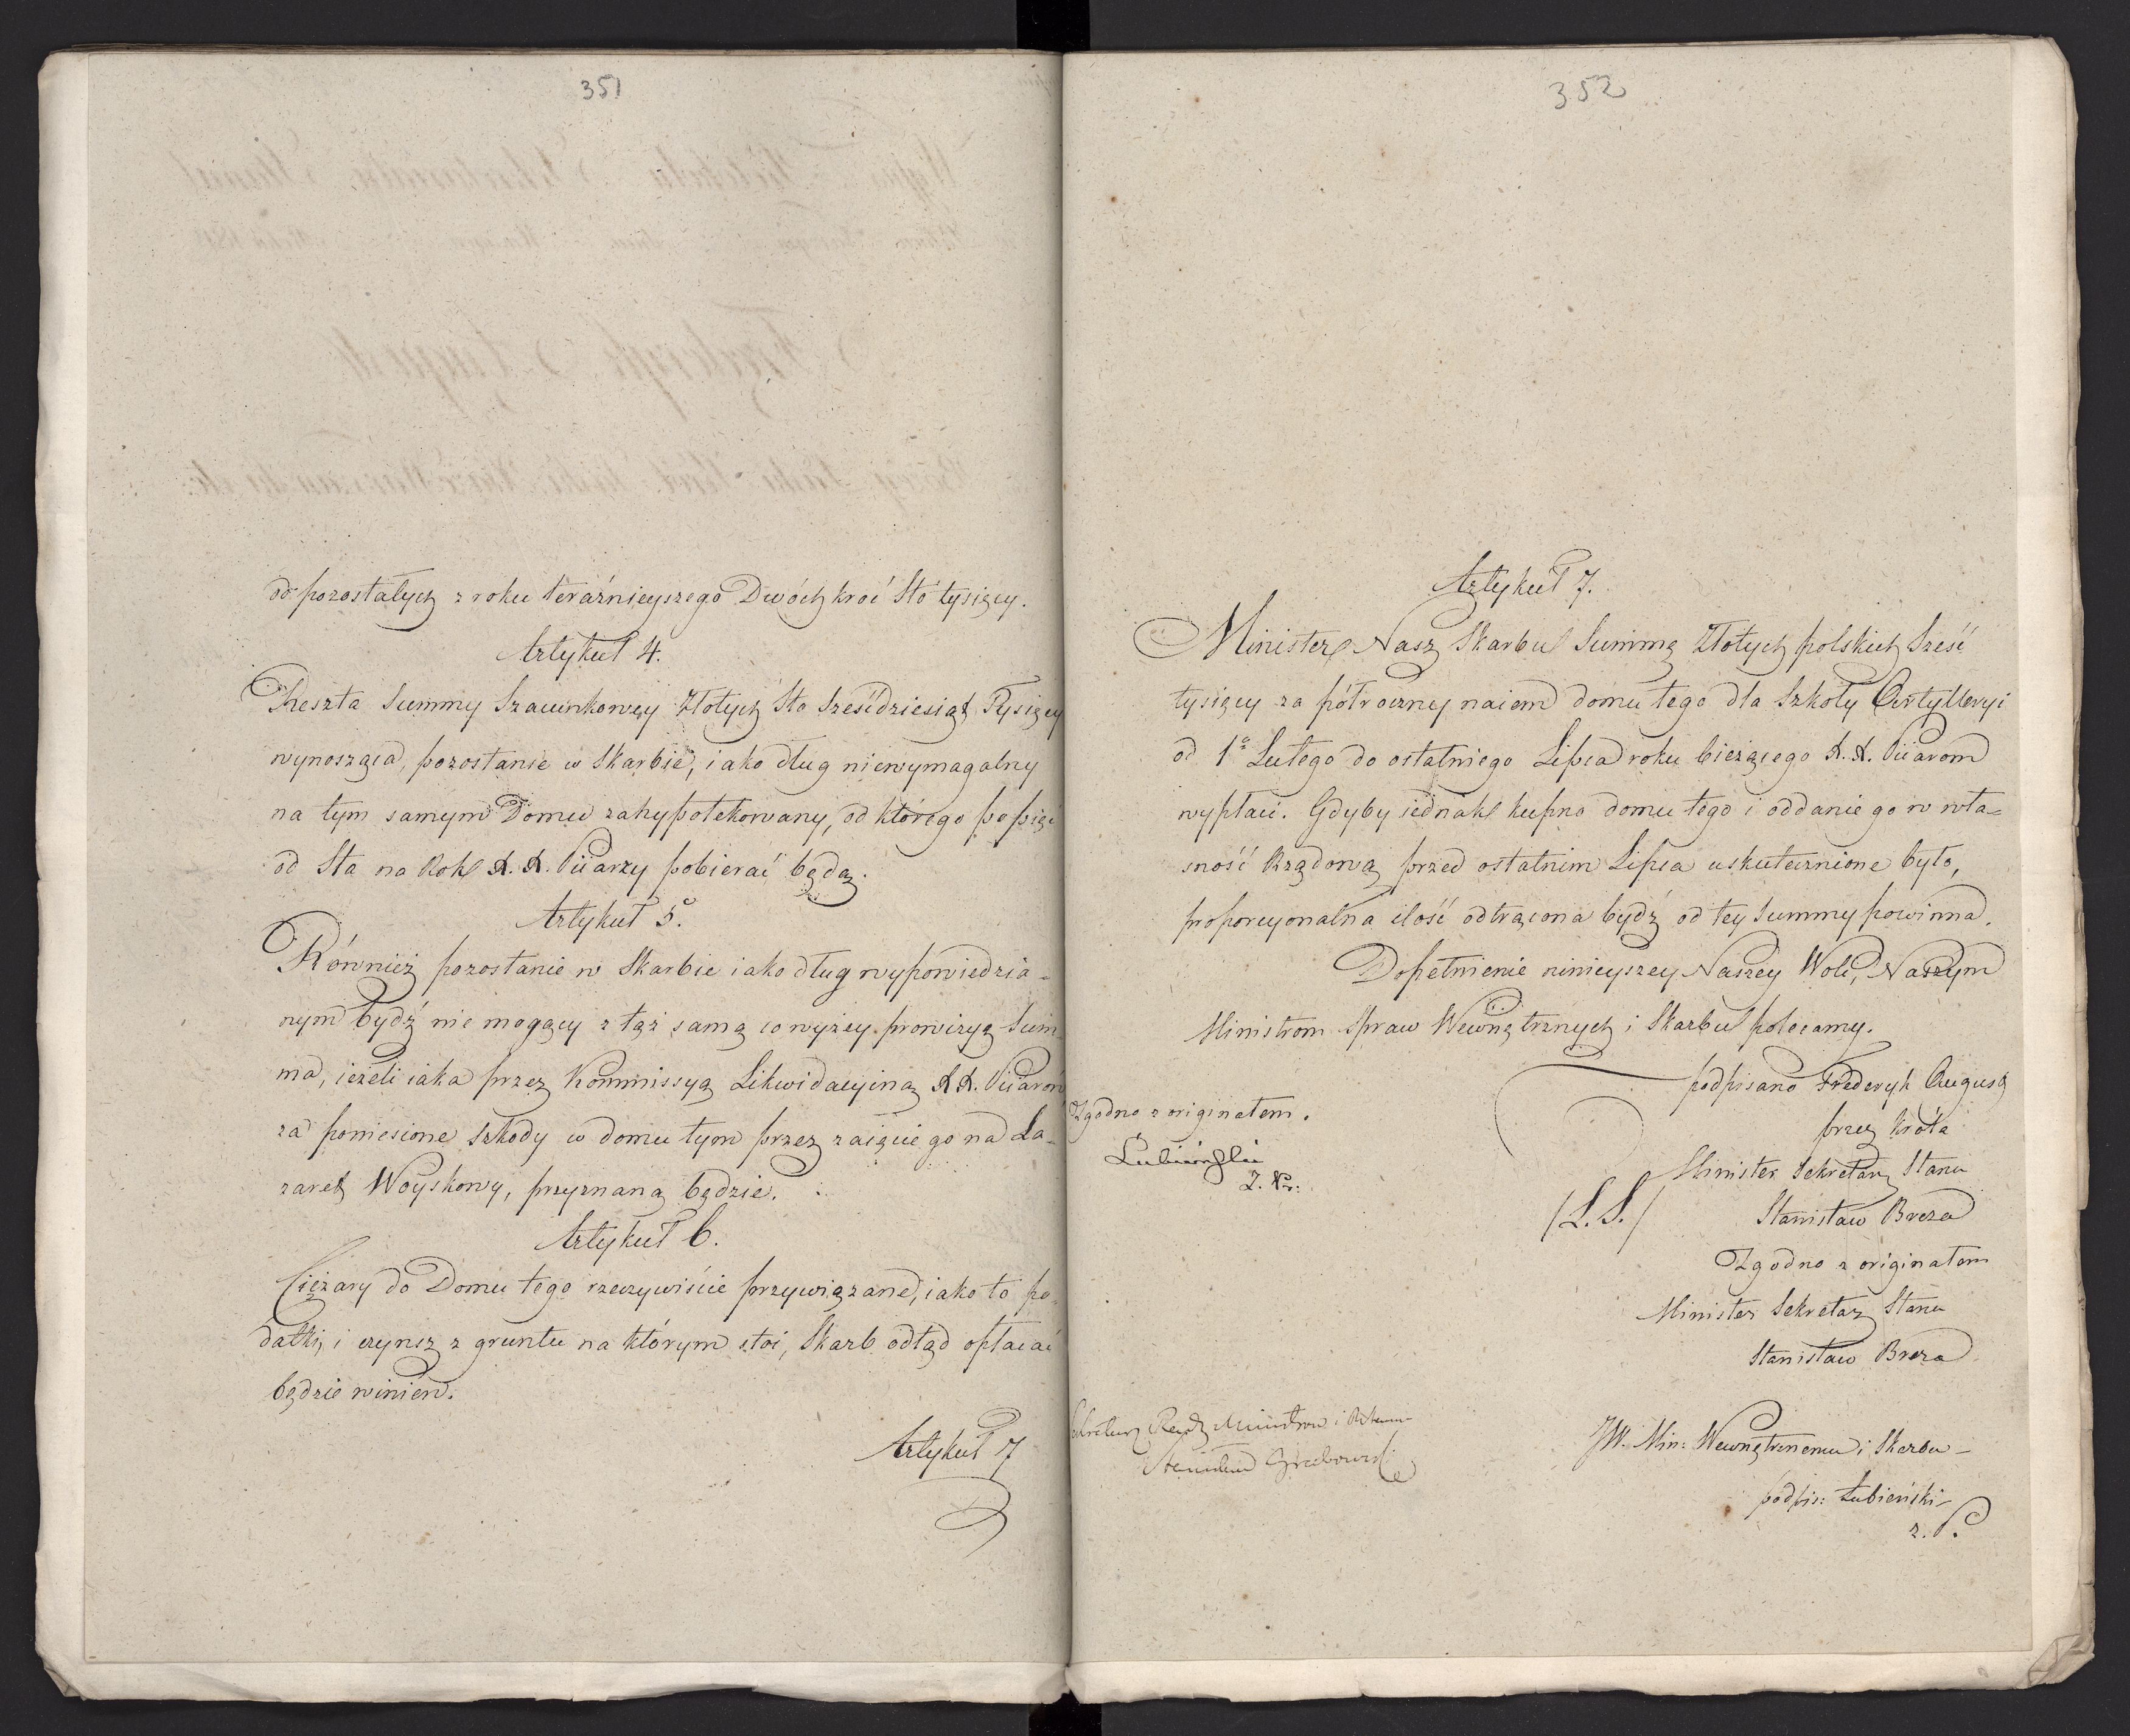 351
od pozostałych z roku teraźnieyszego Dwóch kroć Sto tysięcy.
Artykuł 4.
Reszta Summy Szacunkowey Złotych Sto Sześćdziesiąt Tysięcy
wynosząca, pozostanie w Skarbie, iako dług niewymagalny
na tym samym Domu zahypotekowany, od którego po pięć
od Sta na Rok X.X. Piiarzy pobierać będą.
Artykuł 5.
Również pozostanie w Skarbie iako dług wypowiedzia-
nym bydź nie mogący z tąż samą co wyżey prowizyą Sum-
ma, ieżeli iaka przez Kommissyą Likwidacyiną XX. Piiarom
za poniesione szkody w domu tym przez zaięcie go na La-
zaret Woyskowy, przyznaną będzie.
Artykuł 6.
Ciężary do Domu tego rzeczywiście przywiązane, iako to po-
datki, i czynsz z gruntu na którym stoi, Skarb odtąd opłacać
będzie winien.
Artykuł 7
352
Artykuł 7.
Minister Nasz Skarbu Summę Złotych polskich Sześć
tysięcy za półroczny naiem domu tego dla Szkoły Artylleryi
od 1º Lutego do ostatniego Lipca roku bieżącego X.X. Piiarom
wypłaci. Gdyby iednak kupno domu tego i oddanie go w wła-
sność Rządową przed ostatnim Lipca uskutecznione było,
proporcyonalna ilość odtrącona bydź od tey Summy powinna.
Dopełnienie ninieyszey Naszey Woli, Naszym
Ministrom Spraw Wewnętrznych i Skarbu polecamy.
podpisano Frederyk August
przez Króla
Minister Sekretarz Stanu
(L.S.) Stanisław Breza
Zgodno z originałem
Minister Sekretarz Stanu
Stanisław Breza
Zgodno z originałem.
Łubieński
Sekretarz Rady Ministrów i Stanu
Stanisław Grabowski
JW. Min: Wewnętrznemu i Skarbu
podpis: Łubieński
z. P.